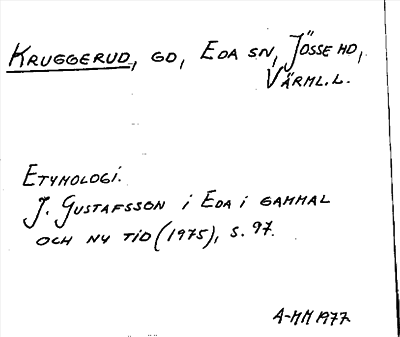 KRUGGERUD, GD, EDA SN, JÖSSE HD,
VÄRML.L.
ETYMOLOGI.
J. GUSTAFSSON i EDA i GAMMAL
OCH NY TID (1975), S. 97.
A-MM 1977